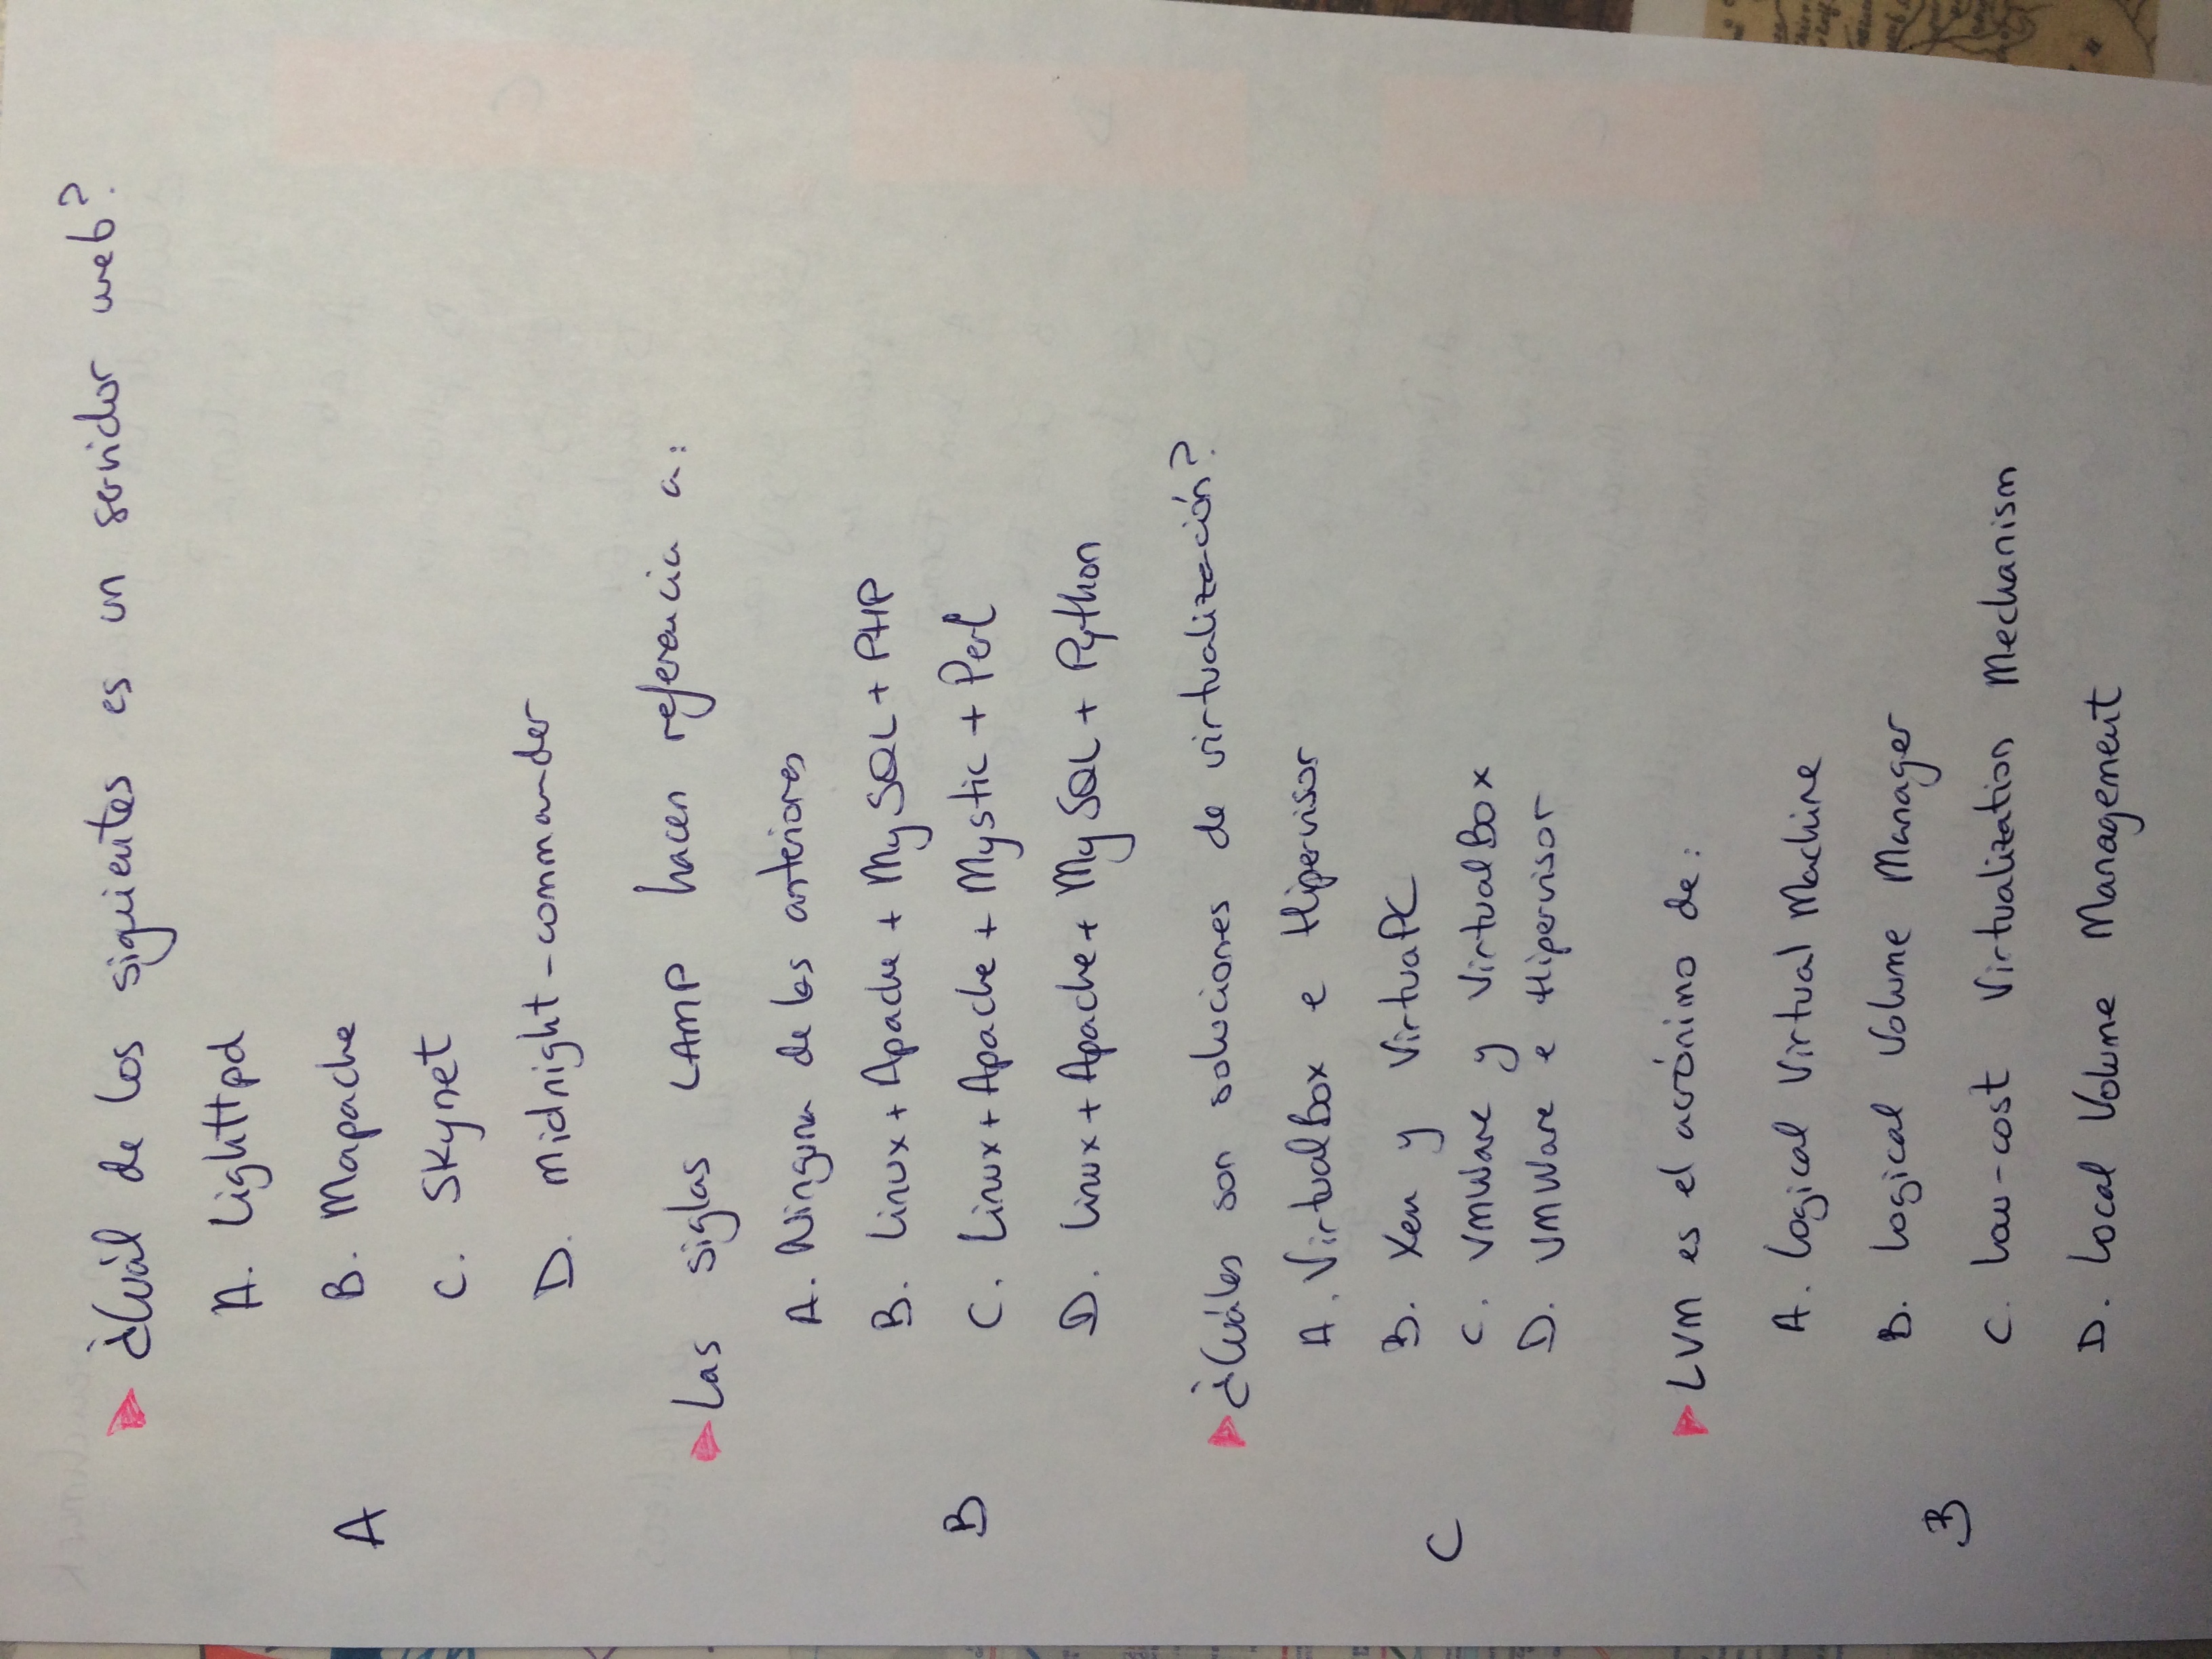 ¿Cuál de los siguientes es un servidor web?
A. Lighttpd
B. Mapache
A
C. Skynet
D. Midnight-commander
Las siglas LAMP hacen referencia a:
A. Ninguna de las anteriores
B. Linux + Apache + MySQL + PHP
B
C. Linux + Apache + Mystic + Perl
D. Linux + Apache + MySQL + Python
¿Cuáles son soluciones de virtualización?
A. VirtualBox e Hipervisor
B. Xen y VirtuaPC
C
C. VMWare y VirtualBox
D. VMWare e Hipervisor
LVM es el acrónimo de:
A. Logical Virtual Machine
B. Logical Volume Manager
B
C. Low-cost Virtualization Mechanism
D. Local Volume Management